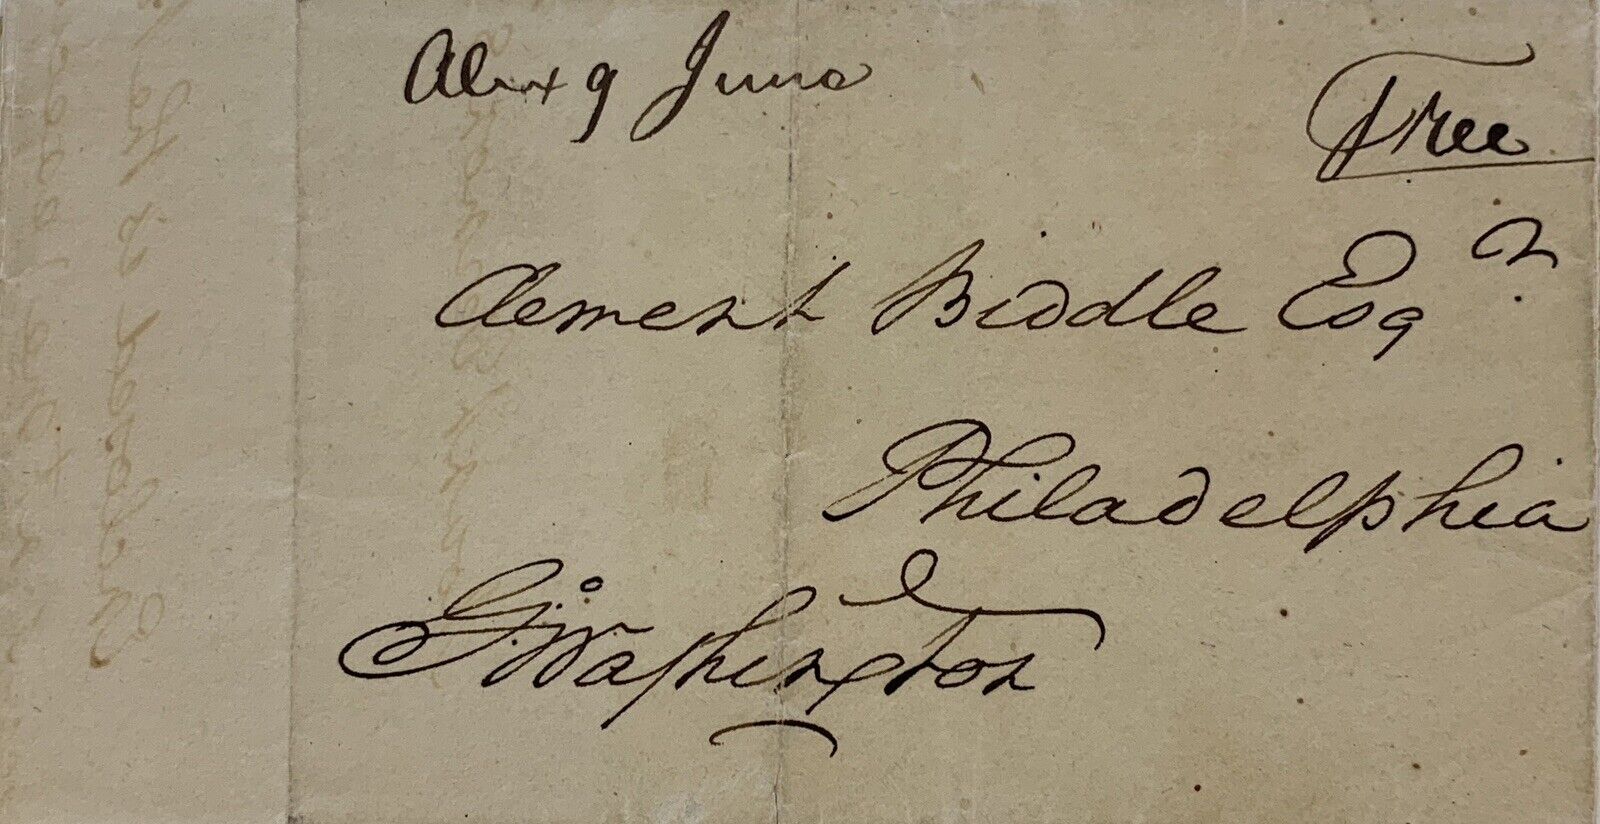 Alex 9 June
Free
Clement Biddle Esqr.
Philadelphia
Go: Washington